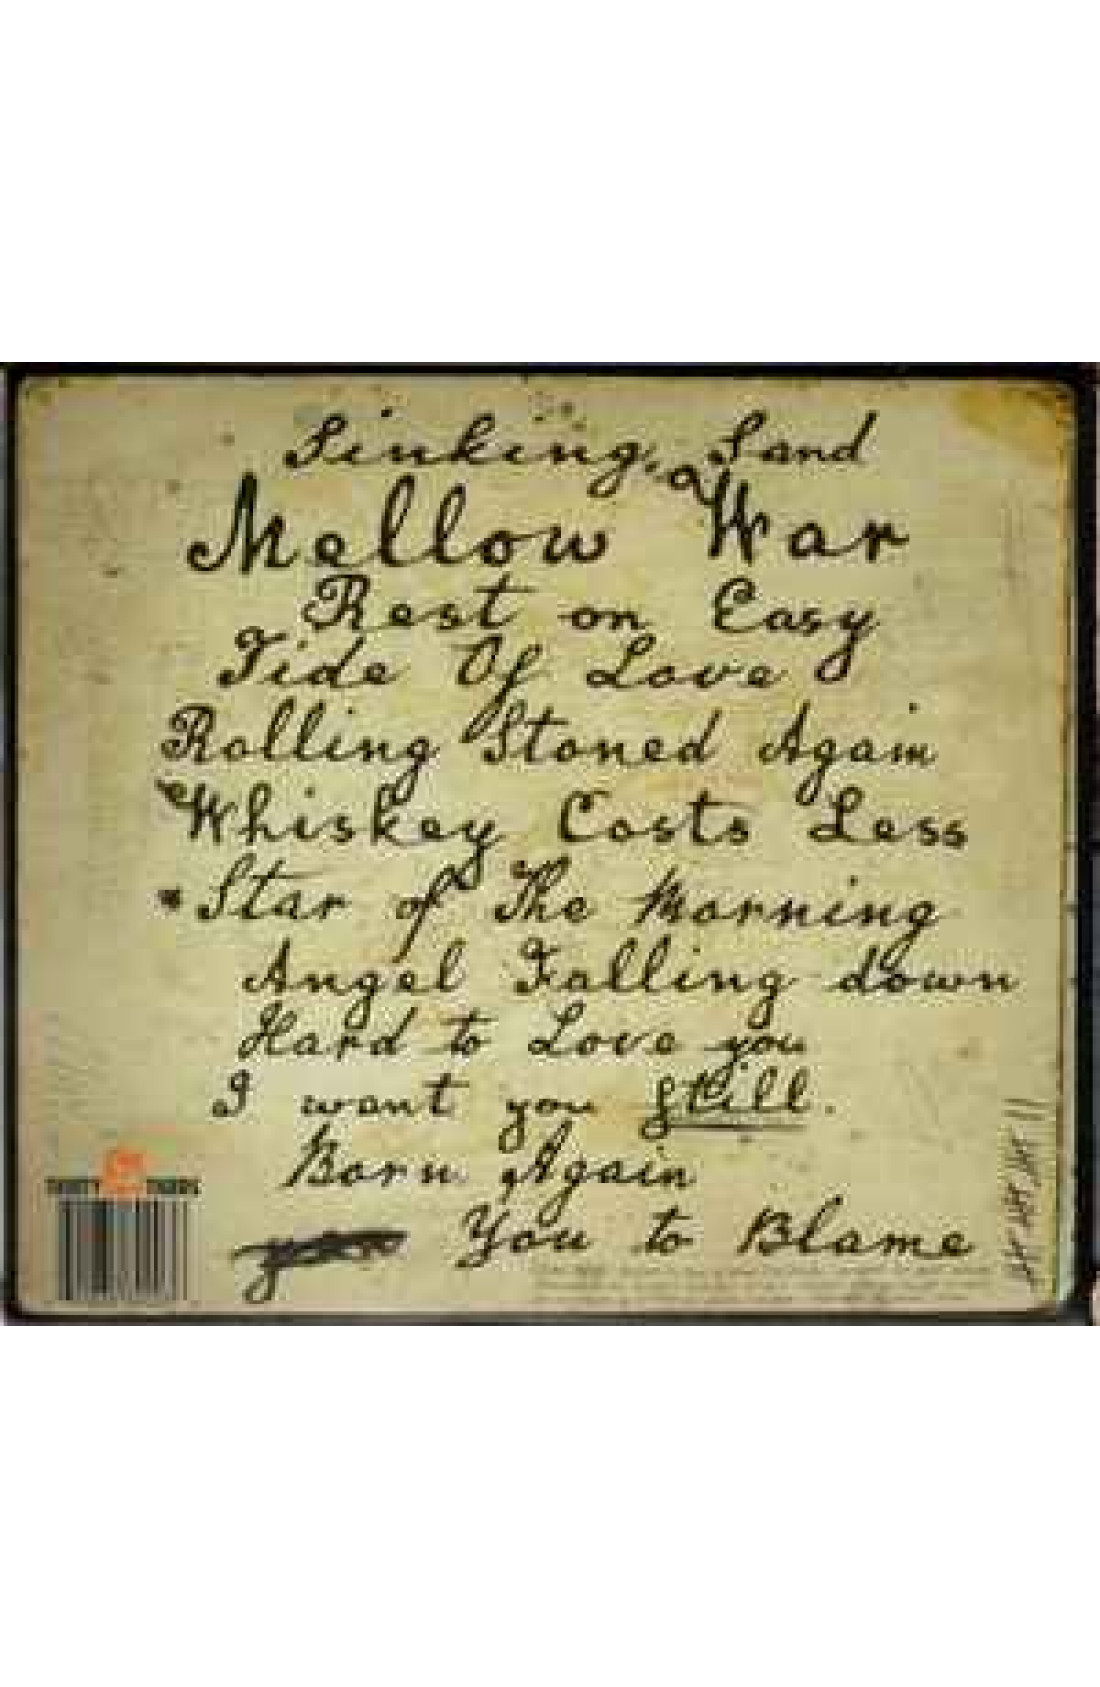 Sinking Sand
Mellow War
Rest on Easy
Tide Of Love
Rolling Stoned Again
Whiskey Costs Less
Star of The Morning
Angel Falling down
Hard to Love you
I want you still.
Born Again
You to Blame
THIRTY TIGERS